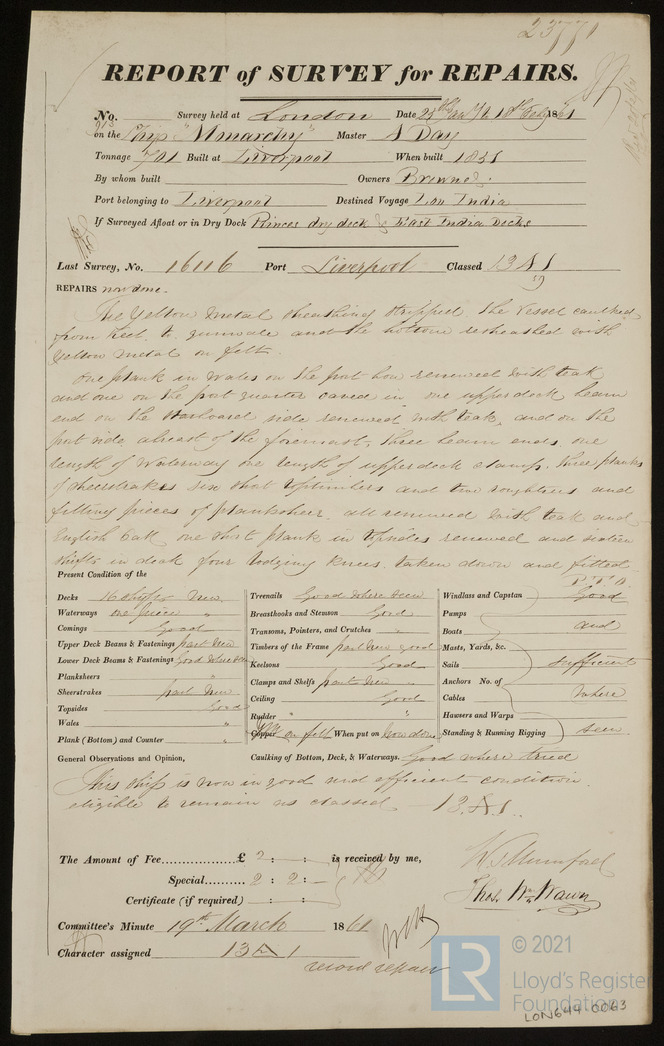 23771
REPORT of SURVEY for REPAIRS.
No. Survey held at London Date 25th Jan to 18th Feby 1861
on the Ship "Monarchy" Master S Day
Tonnage 701 Built at Liverpool When built 1851
By whom built Owners Browne
Port belonging to Liverpool Destined Voyage Lon India
If Surveyed Afloat or in Dry Dock Princes dry dock & East India Docks
Last Survey, No. 16116 Port Liverpool Classed 13 A 1
59
REPAIRS now done.
The Yellow Metal sheathing stripped the Vessel caulked
from keel to gunwale and the bottom resheathed with
Yellow Metal on felt.
One plank in Wales on the port bow renewed with teak
and one on the port quarter caved in one upper deck beam
end on the Starboard side renewed with teak, and on the
port side abreast of the foremast, three beam ends one
length of Waterway one length of upperdeck clamp, three planks
of sheerstrakes six short toptimbers and two roughtrees and
filling pieces of planksheer all renewed with teak and
English Oak one short plank in topsides renewed and sixteen
shifts in deck four lodging knees taken down and fitted
P.T.O.
Present Condition of the
Decks 16 shifts New
Waterways one piece "
Comings Good
Upper Deck Beams & Fastenings part New
Lower Deck Beams & Fastenings Good where seen
Planksheers "
Sheerstrakes part New
Topsides Good
Wales "
Plank (Bottom) and Counter "
Treenails Good where seen
Breasthooks and Stemson Good
Transoms, Pointers, and Crutches "
Timbers of the Frame part New good
Keelsons Good
Clamps and Shelfs part New
Ceiling Good
Rudder "
Copper YM on felt When put on now done
Caulking of Bottom, Deck, & Waterways. Good where tried
Windlass and Capstan Good
Pumps
Boats and
Masts, Yards, &c.
Sails sufficient
Anchors No. of
Cables where
Hawsers and Warps
Standing & Running Rigging seen
General Observations and Opinion,
This ship is now in good and efficient condition
eligible to remain as classed 13 A 1.
The Amount of Fee £ 2 : - : is received by me,
Special 2 : 2 : -
Certificate (if required) : :
W. Mumford
Thos. Wm. Wawn
Committee's Minute 19th March 1861
Character assigned 13 A 1
record repair
LR
© 2021
Lloyd's Register
Foundation
LON644-0063